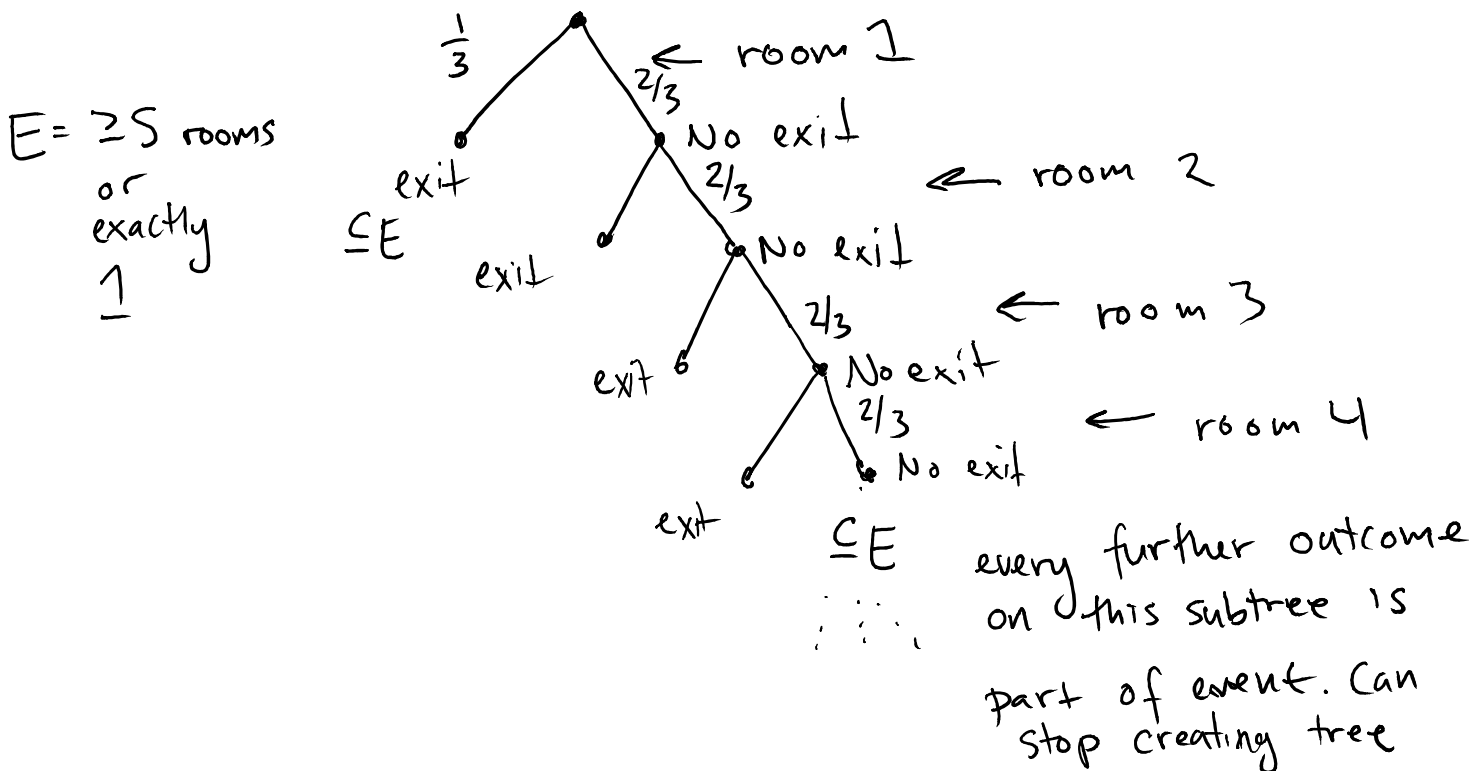 1/3
← room 1
2/3
E = ≥5 rooms
or
exactly
1
exit
⊆E
No exit
2/3
← room 2
exit
No exit
2/3
← room 3
exit
No exit
2/3
← room 4
exit
No exit
⊆E
every further outcome
on this subtree is
part of event. Can
stop creating tree